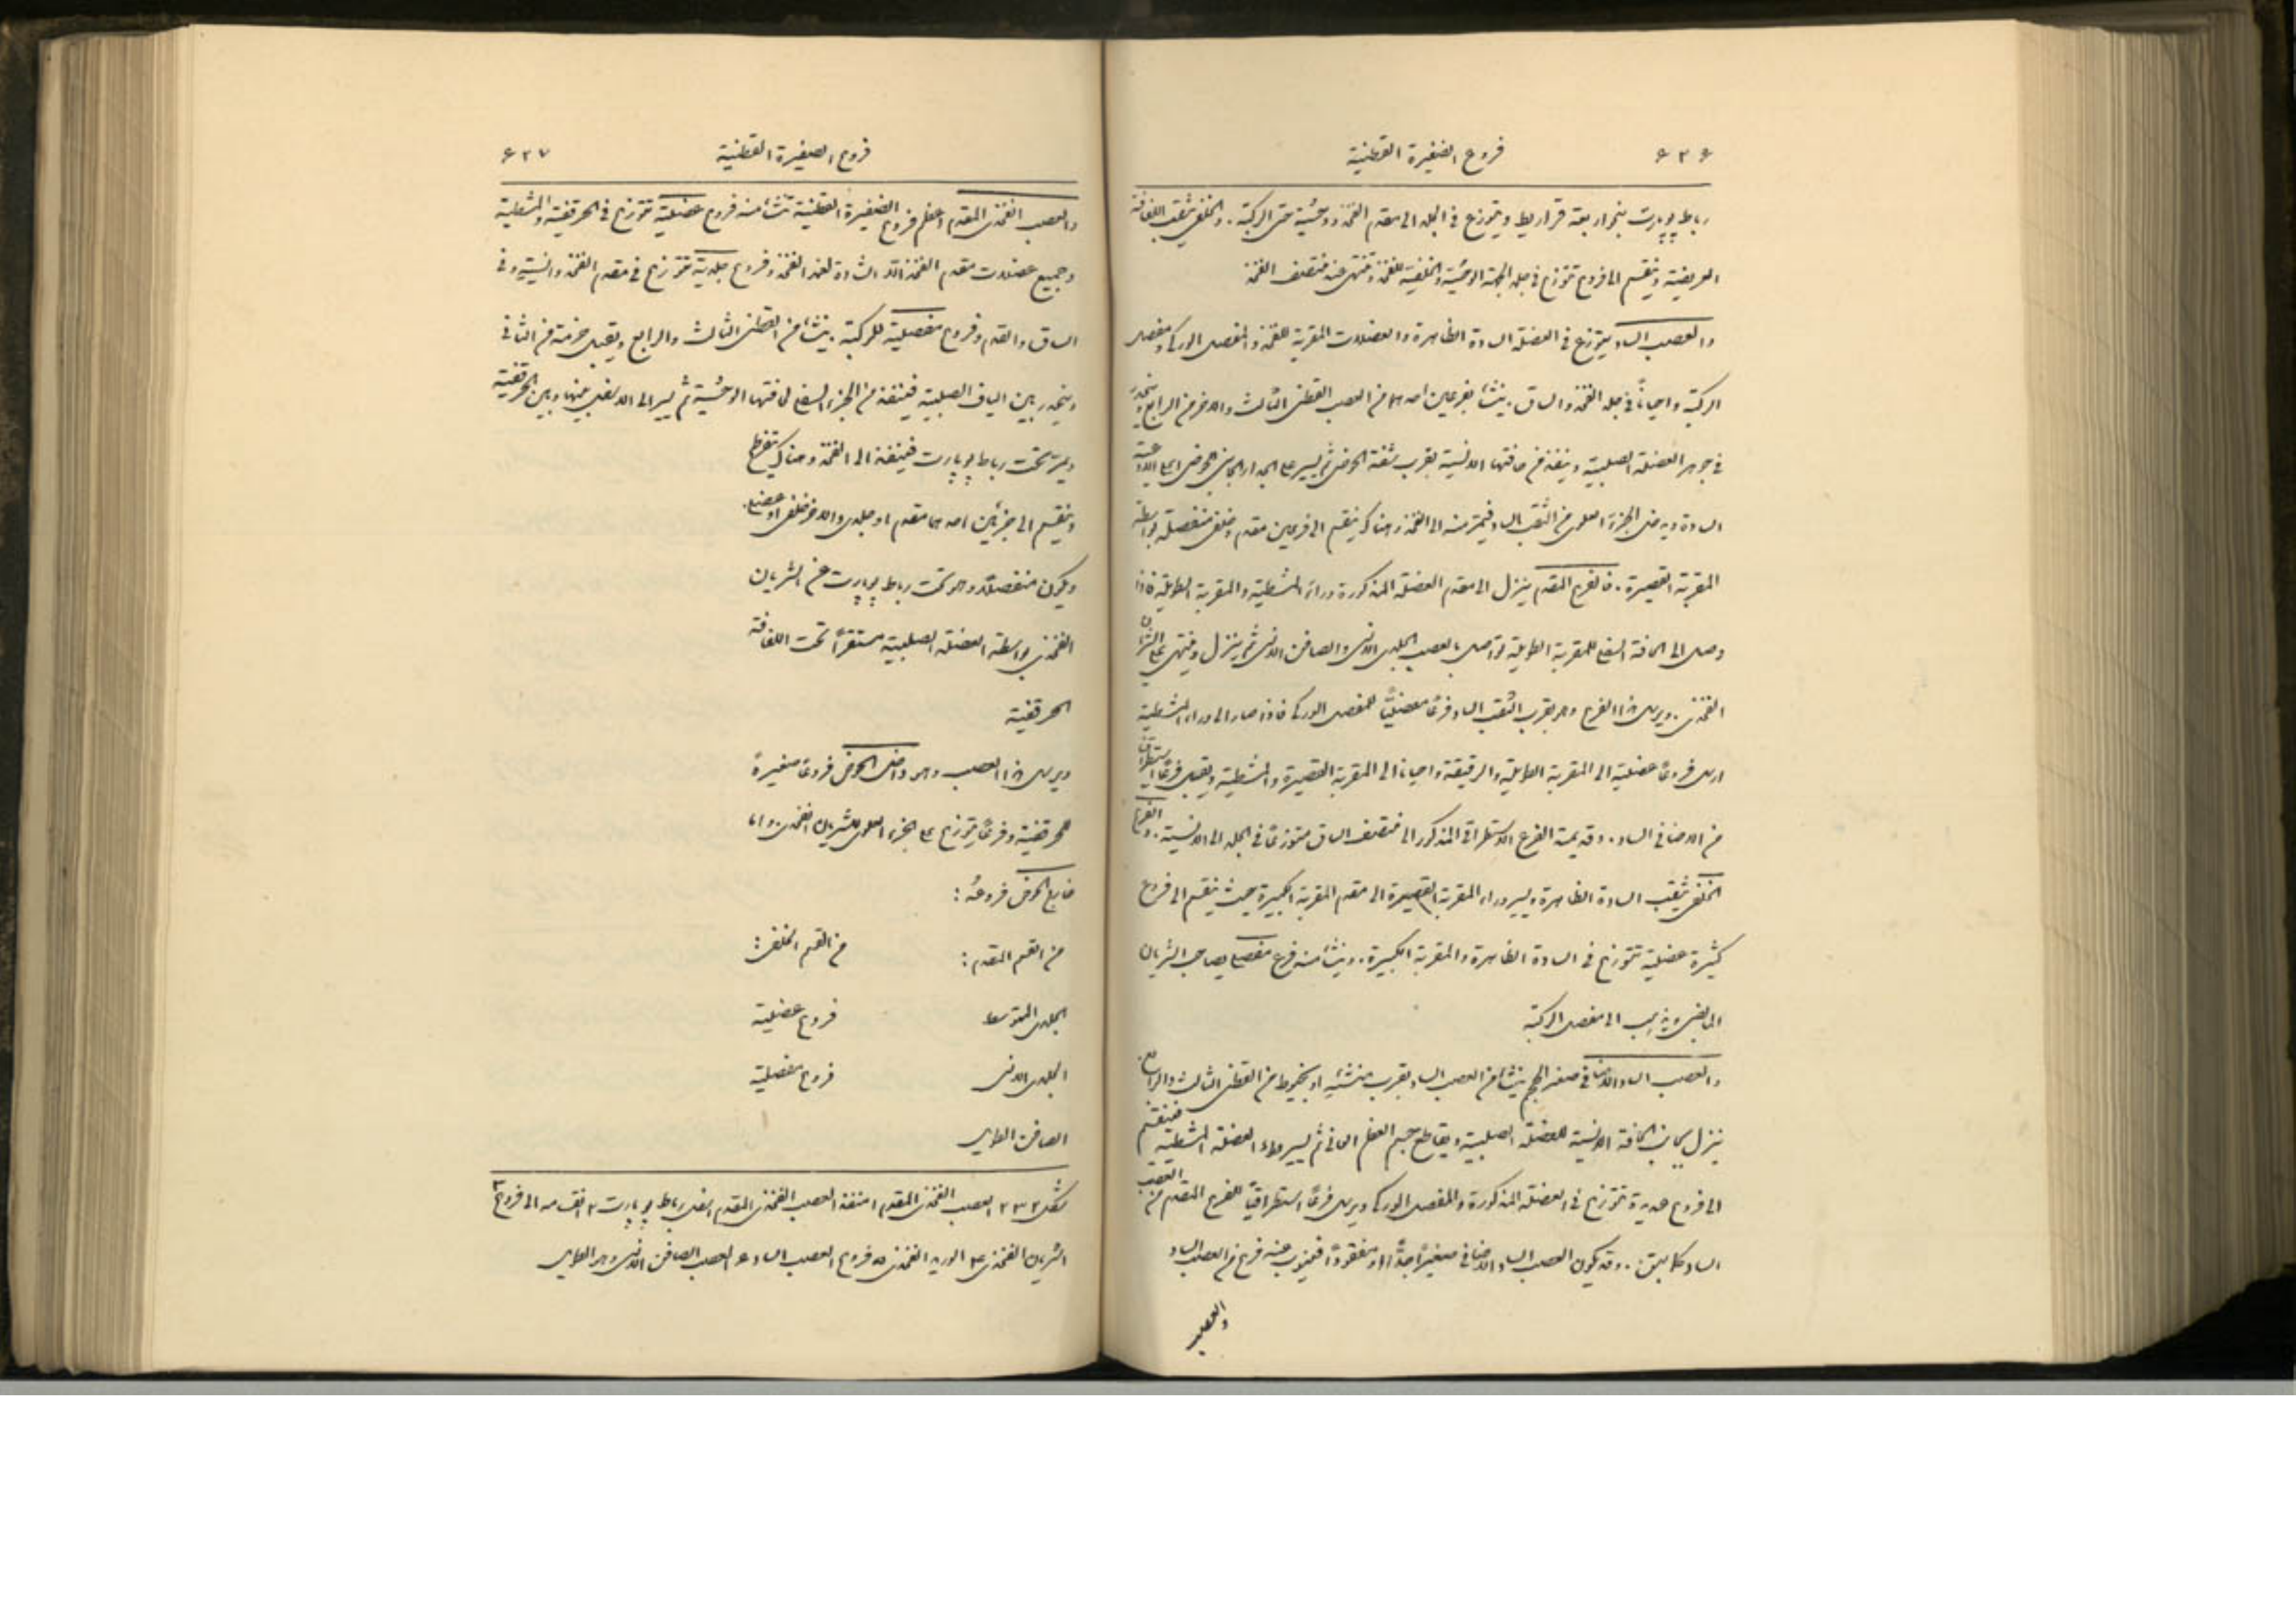 ٦٢٦ فروع الضفيرة القطنية
رباط پوپارت بنحو اربعة قراريط ويتوزع في الجلد الى مقدم الفخذ ووحشيه حتى الركبة. والخلفي يثقب اللفافة
العريضة وينقسم الى فروع تتوزع في جلد الجهة الوحشية والخلفية للفخذ وتنتهي عند منتصف الفخذ
والعصب الساد يتوزع في العضلة السادة الظاهرة والعضلات المقربة للفخذ والمفصل الوركي ومفصل
الركبة واحياناً في جلد الفخذ والساق. ينشأ بفرعين احدهما من العصب القطني الثالث والآخر من الرابع وينحدر
في جوهر العضلة الصلبية وينفذ من حافتها الانسية بقرب شفة الحوض ثم يسير على الجدار الجانبي للحوض اعلى الاوعية
السادة ويدخل الجزء العلوي من الثقب الساد فيمر منه الى الفخذ وهناك ينقسم الى فرعين مقدم وخلفي منفصلة بواسطة
المقربة القصيرة. فالفرع المقدم ينزل الى مقدم العضلة المذكورة وراء المشطية والمقربة الطويلة فاذا
وصل الى الحافة السفلى للمقربة الطويلة تواصل بالعصب الجلدي الانسي والصافن الانسي ثم ينزل وينتهي على الشريان
الفخذي. ويرسل هذا الفرع وهو بقرب الثقب الساد فرعاً مفصلياً للمفصل الوركي فاذا صار الى وراء المشطية
ارسل فروعاً عضلية الى المقربة الطويلة والرقيقة واحياناً الى المقربة القصيرة والمشطية ويقبل فرعاً استطراقياً
من الاضافي الساد. وقد يمتد الفرع الاستطراقي المذكور الى منتصف الساق متوزعاً في الجلد الى الانسية. والفرع
الخلفي يثقب السادة الظاهرة ويسير وراء المقربة القصيرة الى مقدم المقربة الكبيرة حيث ينقسم الى فروع
كثيرة عضلية تتوزع في السادة الظاهرة والمقربة الكبيرة. وينشأ منه فرع مفصلي يصاحب الشريان
المابضي ويذهب الى مفصل الركبة
والعصب الساد الاضافي صغير الحجم ينشأ من العصب الساد بقرب منشئه او بخيوط من القطني الثالث والرابع
ينزل بمحاذاة الحافة الانسية للعضلة الصلبية ويقاطع جسم العظم العاني ثم يسير وراء العضلة المشطية فينقسم
الى فروع عديدة تتوزع في العضلة المذكورة والمفصل الوركي ويرسل فرعاً استطراقياً للفرع المقدم من العصب
الساد كما سبق. وقد يكون العصب الساد الاضافي صغيراً جداً او مفقوداً فينوب عنه فرع من العصب الساد
والعصب
فروع الضفيرة القطنية ٦٢٧
والعصب الفخذي المقدم اعظم فروع الضفيرة القطنية تنشأ منه فروع عضلية تتوزع في الحرقفية والمشطية
وجميع عضلات مقدم الفخذ الا الشادة لغمد الفخذ وفروع جلدية تتوزع في مقدم الفخذ وانسيته وفي
الساق والقدم وفروع مفصلية للركبة. ينشأ من القطني الثالث والرابع ويقبل حزمة من الثاني
وينحدر بين الياف الصلبية فينفذ من الجزء السفلي لحافتها الوحشية ثم يسير الى الاسفل بينها وبين الحرقفية
ويمر تحت رباط پوپارت فينفذ الى الفخذ وهناك يتفرطح
وينقسم الى جزئين احدهما مقدم او جلدي والآخر خلفي او عضلي.
ويكون منفصلاً وهو تحت رباط پوپارت عن الشريان
الفخذي بواسطة العضلة الصلبية مستقراً تحت اللفافة
الحرقفية
ويرسل هذا العصب وهو داخل الحوض فروعاً صغيرة
للحرقفية وفرعاً يتوزع على الجزء العلوي للشريان الفخذي. واما
خارج الحوض فروعه:
من القسم المقدم: من القسم الخلفي:
الجلدي المتوسط فروع عضلية
الجلدي الانسي فروع مفصلية
الصافن الطويل
شكل ٢٣٢ العصب الفخذي المقدم ١ منفذ العصب الفخذي المقدم اسفل رباط پوپارت ٢ انقسامه الى فروع ٣
الشريان الفخذي ٤ الوريد الفخذي ٥ فروع العصب الساد ٦ العصب الصافن الانسي وهو الطويل